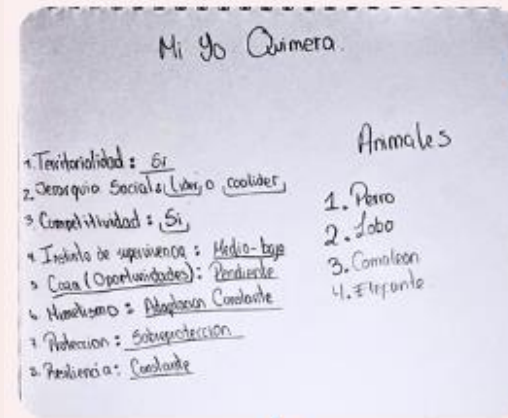 Mi Yo Quimera.
1. Territorialidad : Si
2. Jerarquia Social: Lider, o coolider,
3. Competitividad : Si,
4. Instinto de supervivencia : Medio-bajo
5. Caza (Oportunidades): Pendiente
6. Mimetismo : Adaptacion Constante
7. Proteccion : Sobreproteccion
8. Resiliencia : Constante
Animales
1. Perro
2. Lobo
3. Camaleon
4. Elefante